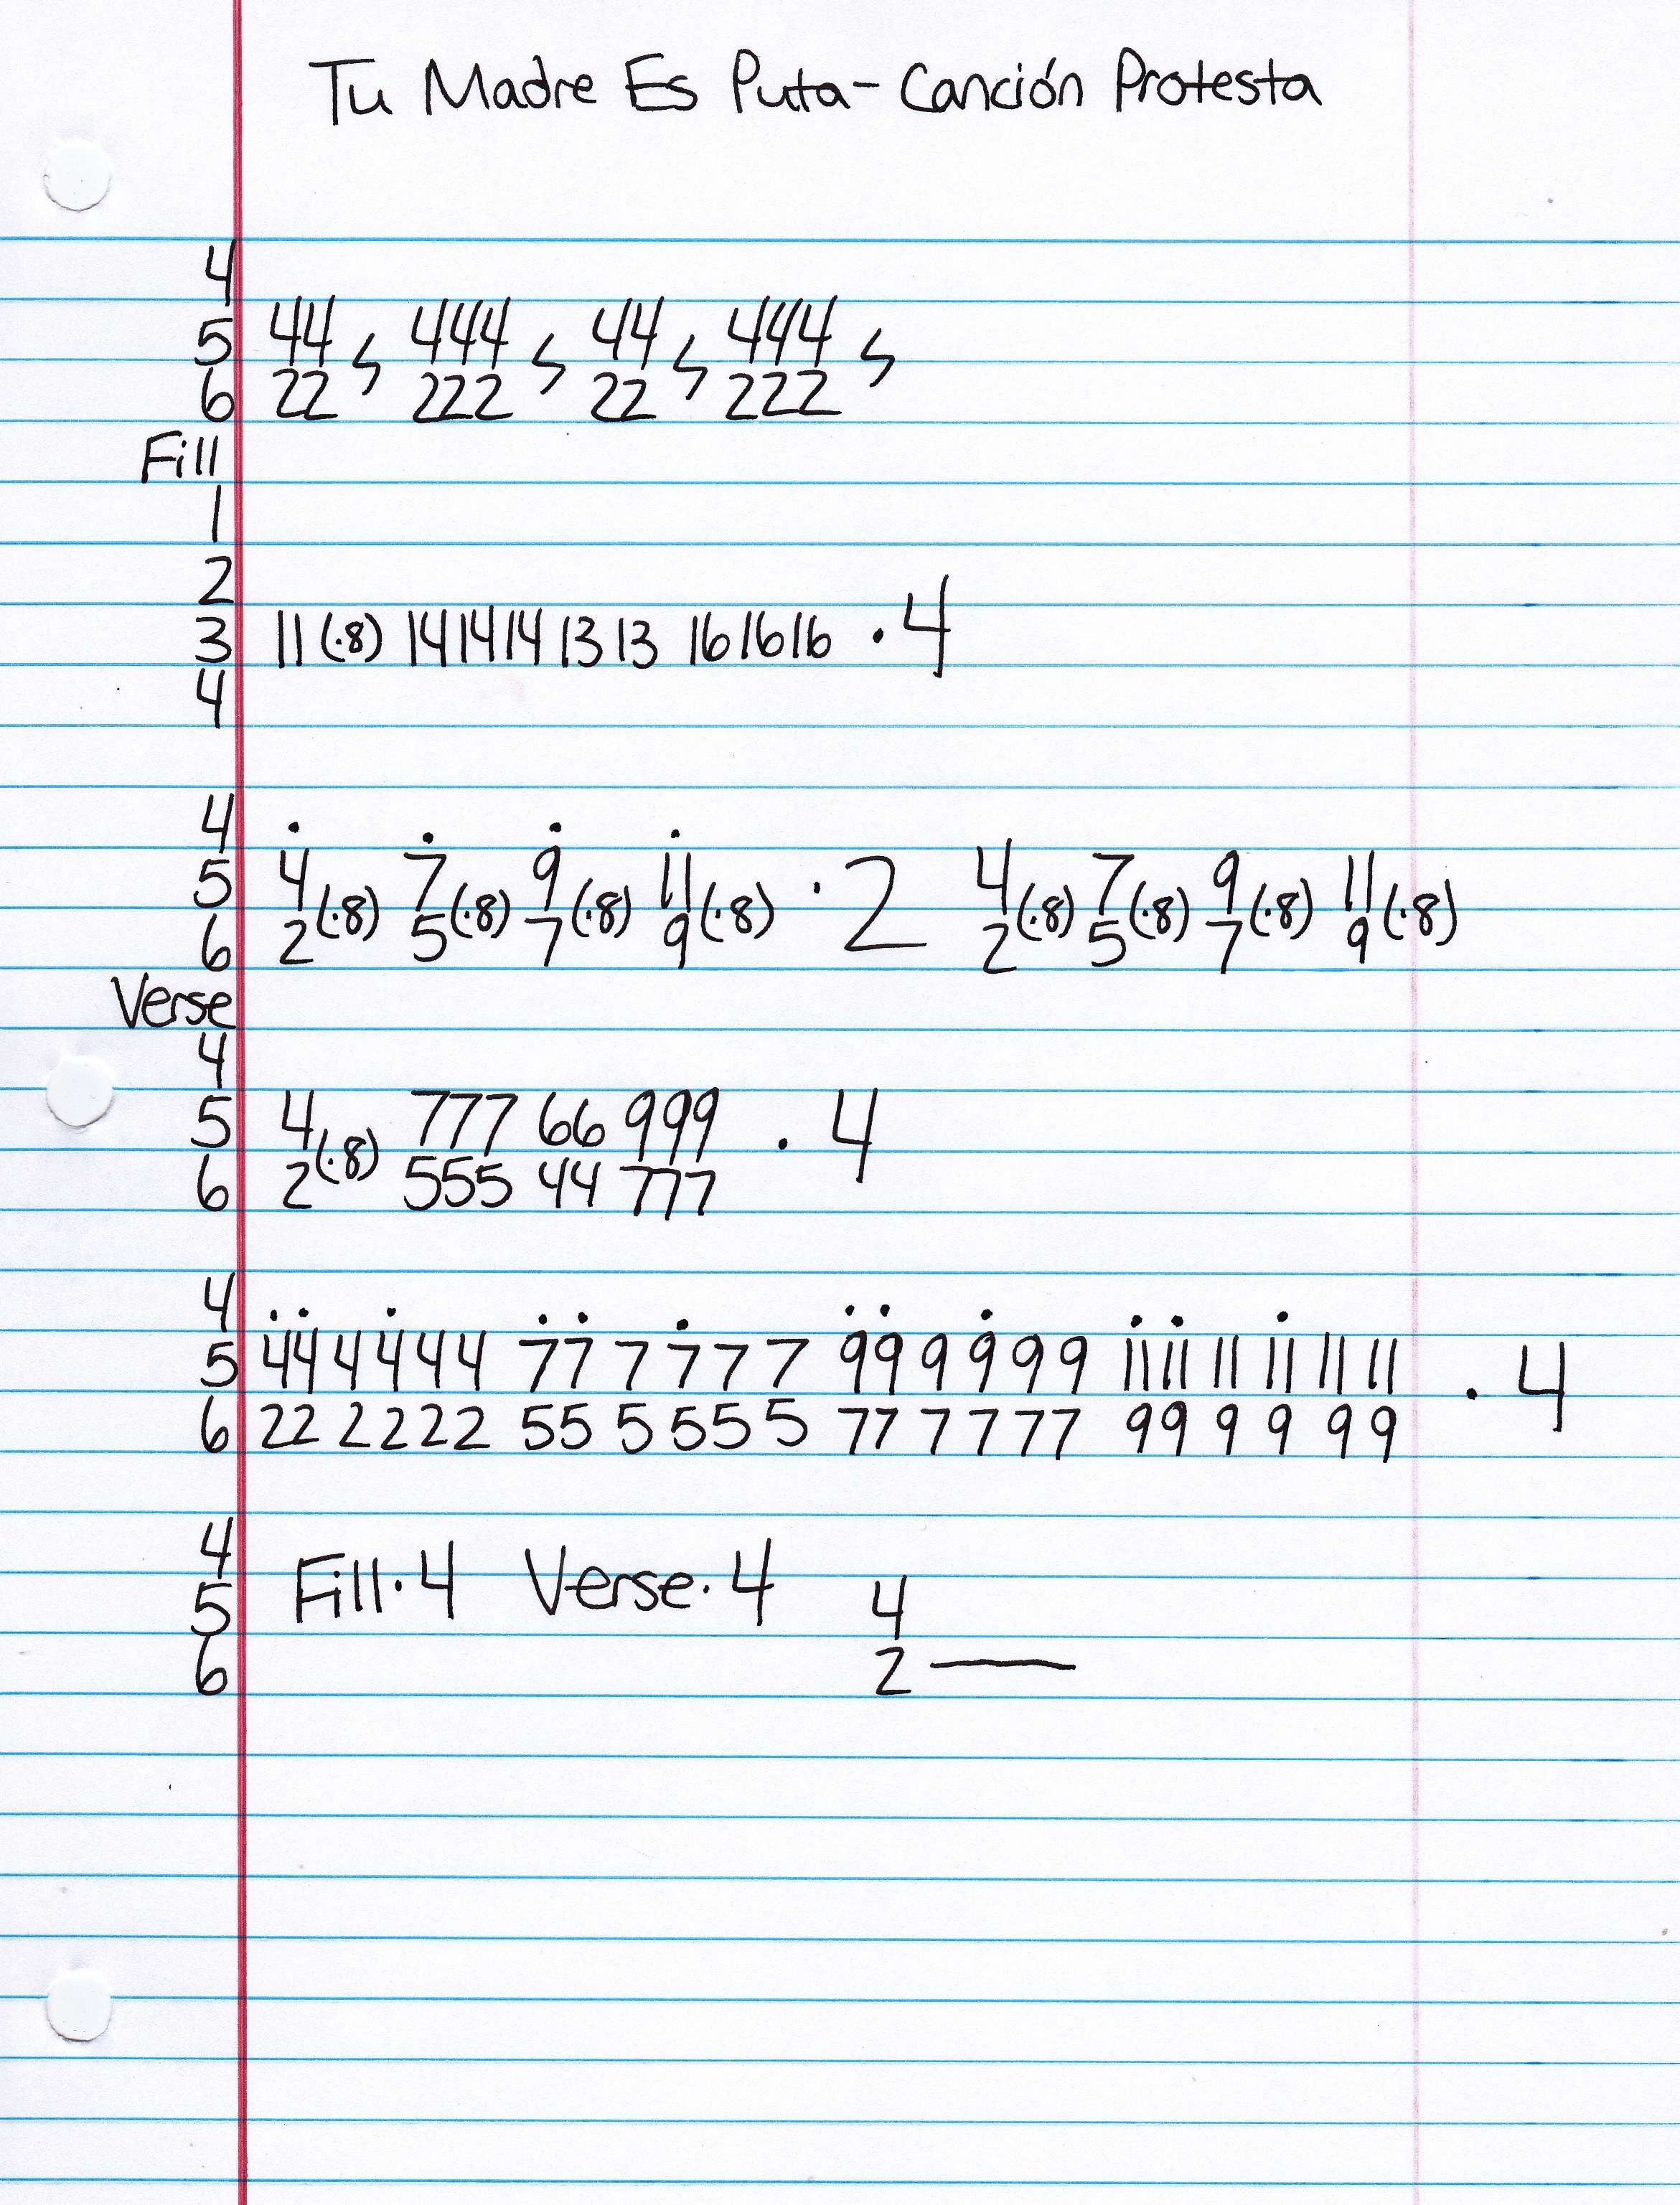 Tu Madre Es Puta - Canción Protesta
4
5 44 ϟ 444 ϟ 44 ϟ 444 ϟ
6 22 222 22 222
Fill
1
2
3 11 (·8) 14 14 14 13 13 16 16 16 · 4
4
4
5 4 (·8) 7 (·8) 9 (·8) 11 (·8) · 2 4 (·8) 7 (·8) 9 (·8) 11 (·8)
6 2 5 7 9 2 5 7 9
Verse
4
5 4 (·8) 777 66 999 · 4
6 2 555 44 777
4
5 44 4 4 4 4 77 7 7 7 7 99 9 9 9 9 11 11 11 11 11 11 · 4
6 22 2 2 2 2 55 5 5 5 5 77 7 7 7 7 99 9 9 9 9
4
5 Fill · 4 Verse · 4 4
6 2 —